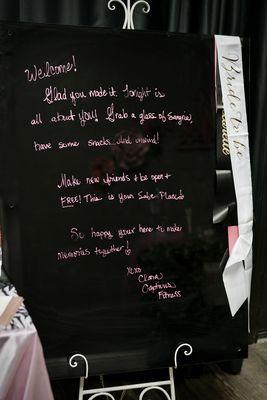 Welcome!
Glad you made it. Tonight is
all about YOU! Grab a glass of Sangria,
have some snacks and unwind!
Make new friends & be open &
FREE! This is your Safe Place
So happy your here to make
memories together!
xoxo
Clara
Captiva
Fitness
Bride to be